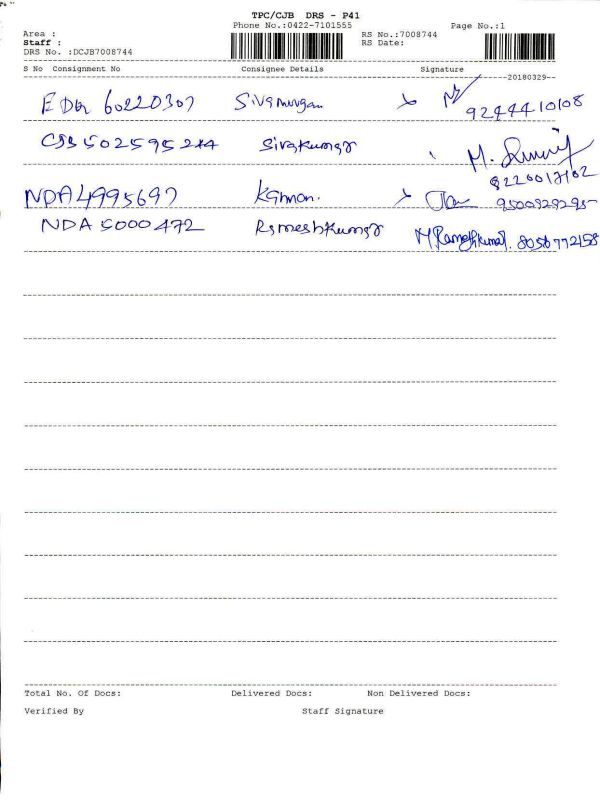 TPC/CJB DRS - P41
Phone No.:0422-7101555 Page No.:1
Area : RS No.:7008744
Staff : RS Date:
DRS No. :DCJB7008744
S No Consignment No Consignee Details Signature
20180329
60220307 Sivamurugan
9244410108
502595244 Sivakumar
M.
8220017102
NDA4995697 Kannan.
9500929295
NDA 5000472 Rameshkumar M Rameshkumar. 8056772158
Total No. Of Docs: Delivered Docs: Non Delivered Docs:
Verified By Staff Signature